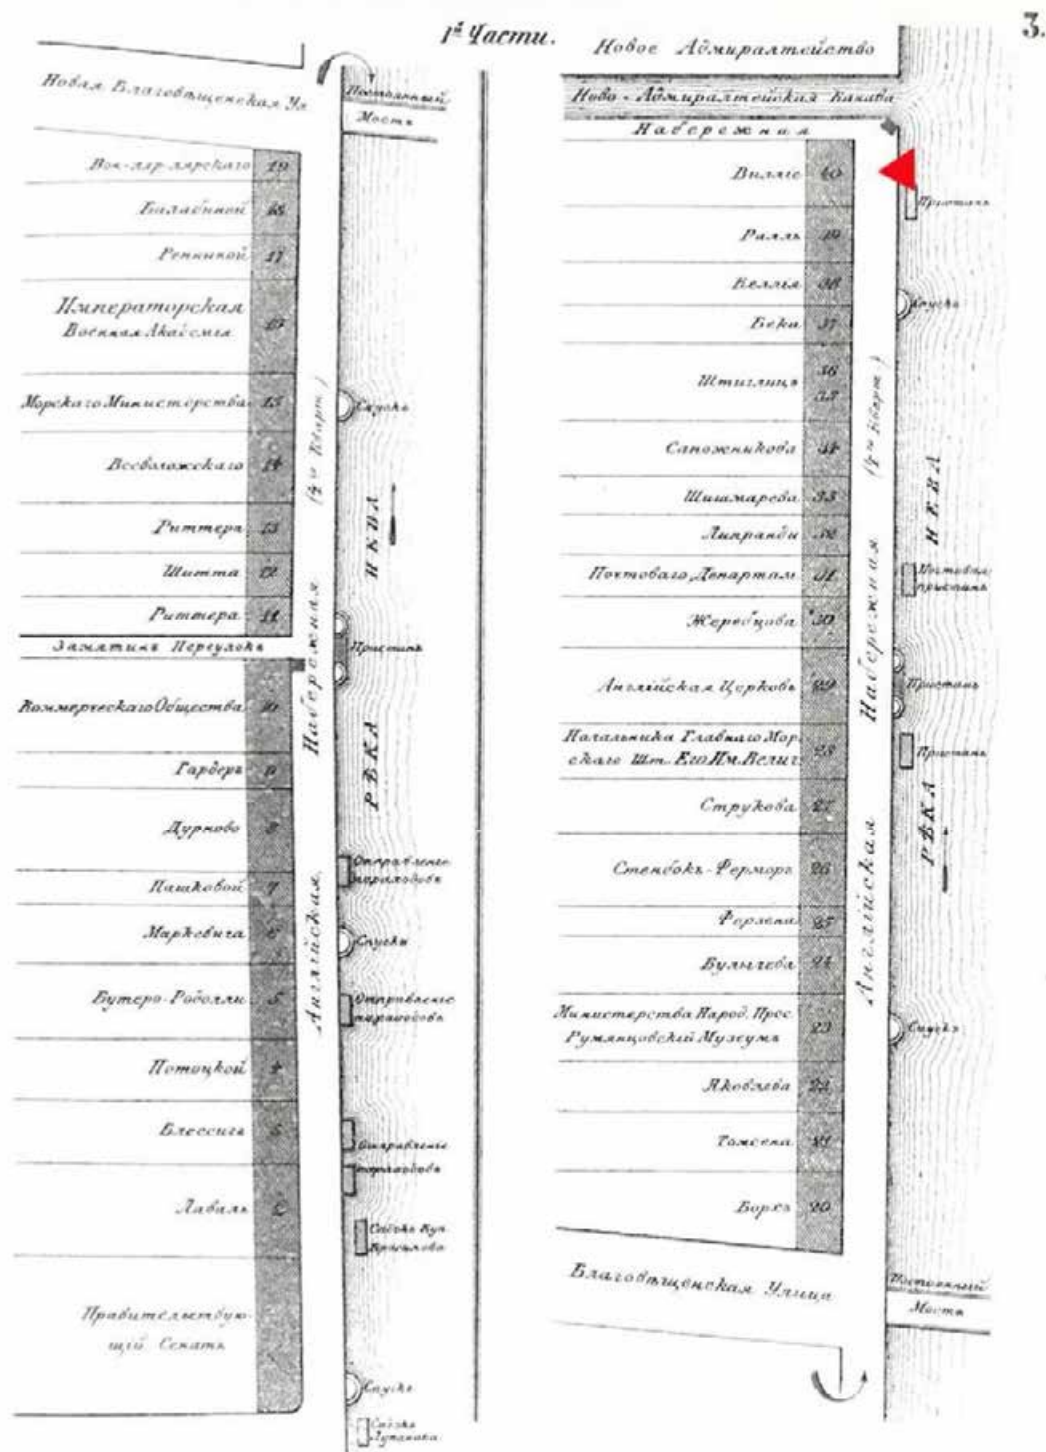 1й Части.
3.
Новая Благовѣщенская Ул
Постоянный
Мостъ
Вон-ляр-лярскаго 19
Балабиной 18
17
Императорская
Военная Академія
Морскаго Министерства 15
Всеволожскаго 14
Риттера 13
Шитта 12
Риттера 11
Замятинъ Переулокъ
Коммерческаго Общества 10
Гардеръ 9
Дурново 8
Пашковой 7
Маркевича 6
Бутеро-Родолли 5
Потоцкой 4
Блессигъ 3
Лаваль 2
Правительствую-
щій Сенатъ
Англійская Набережная
РѢКА НЕВА
Спускъ
Пристань
Отправленіе
пароходовъ
Спускъ
Отправленіе
пароходовъ
Отправленіе
пароходовъ
Садокъ Куп.
Спускъ
Садокъ
Новое Адмиралтейство
Ново-Адмиралтейская Канава
Набережная
Вилліе 40
Ралль 39
38
Бека 37
Штиглицъ 36
35
Сапожникова 34
Шишмарева 33
Липранди 32
Почтоваго Департам. 31
Жеребцова 30
Англійская Церковь 29
Начальника Главнаго Мор-
скаго Шт. Его Им. Велич. 28
Струкова 27
Стенбокъ-Ферморъ 26
Ферзена 25
Булычева 24
Министерства Народ. Прос.
Румянцовскій Музеумъ 23
Яковлева 22
Томсена 21
Борхъ 20
Благовѣщенская Улица
Англійская Набережная
РѢКА НЕВА
Пристань
Спускъ
Почтовая
пристань
Пристань
Пристань
Спускъ
Постоянный
Мостъ